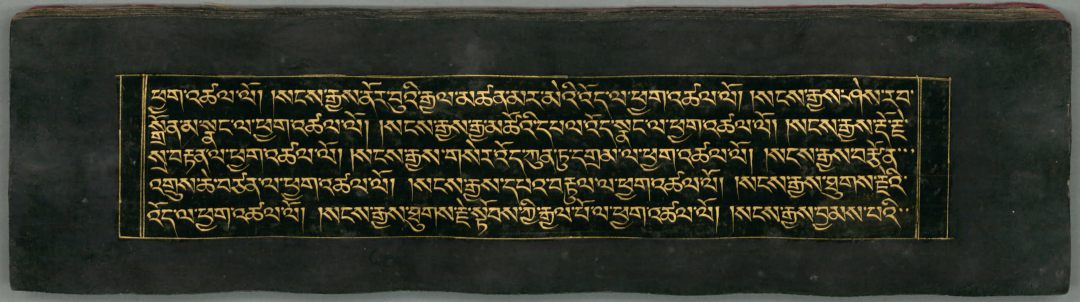 ཕྱག་འཚལ་ལོ། །སངས་རྒྱས་ནོར་བུའི་རྒྱལ་མཚན་མར་མེའི་འོད་ལ་ཕྱག་འཚལ་ལོ། །སངས་རྒྱས་ཤེས་རབ་
སྒྲོན་མ་སྣང་ལ་ཕྱག་འཚལ་ལོ། །སངས་རྒྱས་རྒྱ་མཚོའི་དཔལ་འོད་སྣང་ལ་ཕྱག་འཚལ་ལོ། །སངས་རྒྱས་རྡོ་རྗེ་
སྲ་བརྟན་ལ་ཕྱག་འཚལ་ལོ། །སངས་རྒྱས་གསེར་འོད་ཀུན་ཏུ་དགྲམ་ལ་ཕྱག་འཚལ་ལོ། །སངས་རྒྱས་བརྩོན་
འགྲུས་ཆེ་བཙན་ལ་ཕྱག་འཚལ་ལོ། །སངས་རྒྱས་དཔའ་བརྟུལ་ལ་ཕྱག་འཚལ་ལོ། །སངས་རྒྱས་ཐུགས་རྗེའི་
འོད་ལ་ཕྱག་འཚལ་ལོ། །སངས་རྒྱས་ཐུགས་རྗེ་སྟོབས་ཀྱི་རྒྱལ་པོ་ལ་ཕྱག་འཚལ་ལོ། །སངས་རྒྱས་བྱམས་པའི་